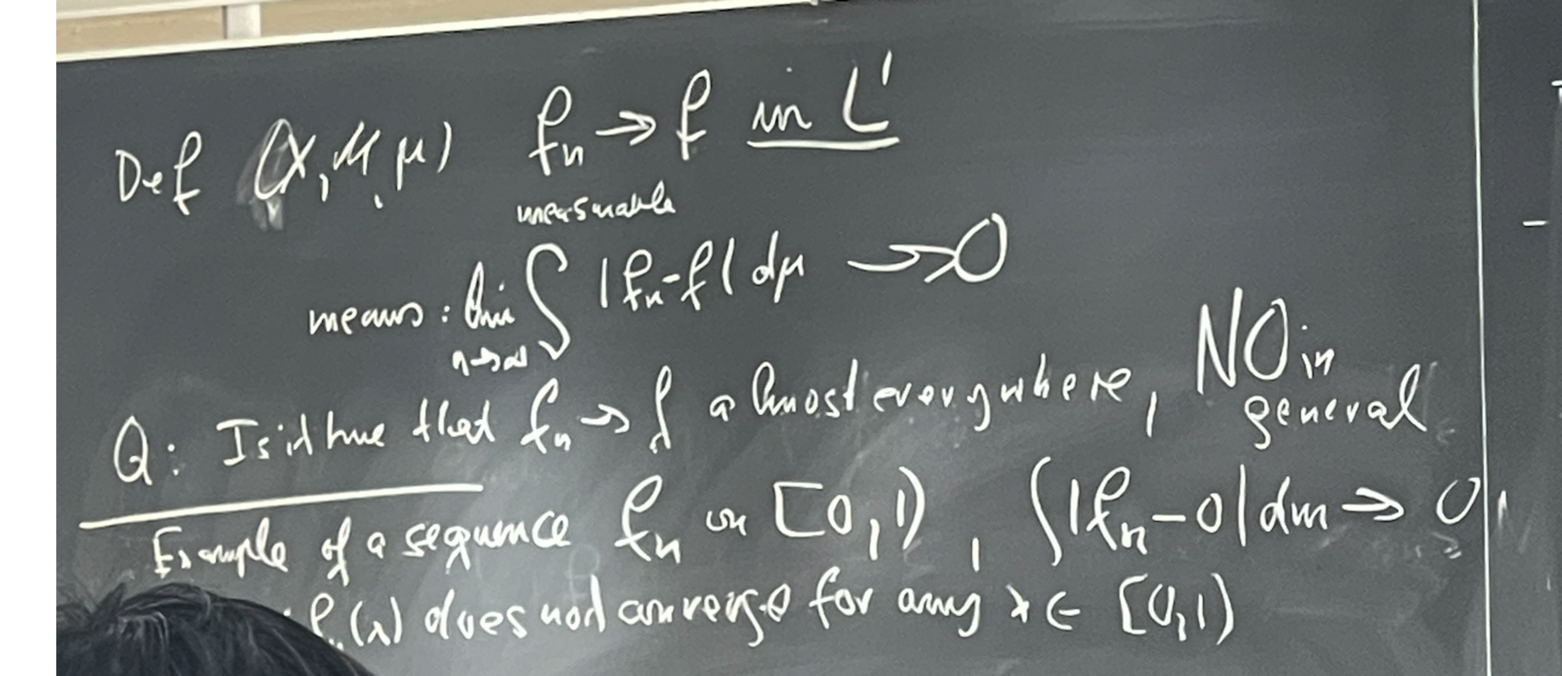 Def (X, M, μ) fₙ → f in L¹
measurable
means: lim ∫ |fₙ-f| dμ → 0
n→∞
Q: Is it true that fₙ → f almost everywhere, NO in
general
Example of a sequence fₙ on [0,1), ∫|fₙ-0|dm → 0,
fₙ(x) does not converge for any x ∈ [0,1)